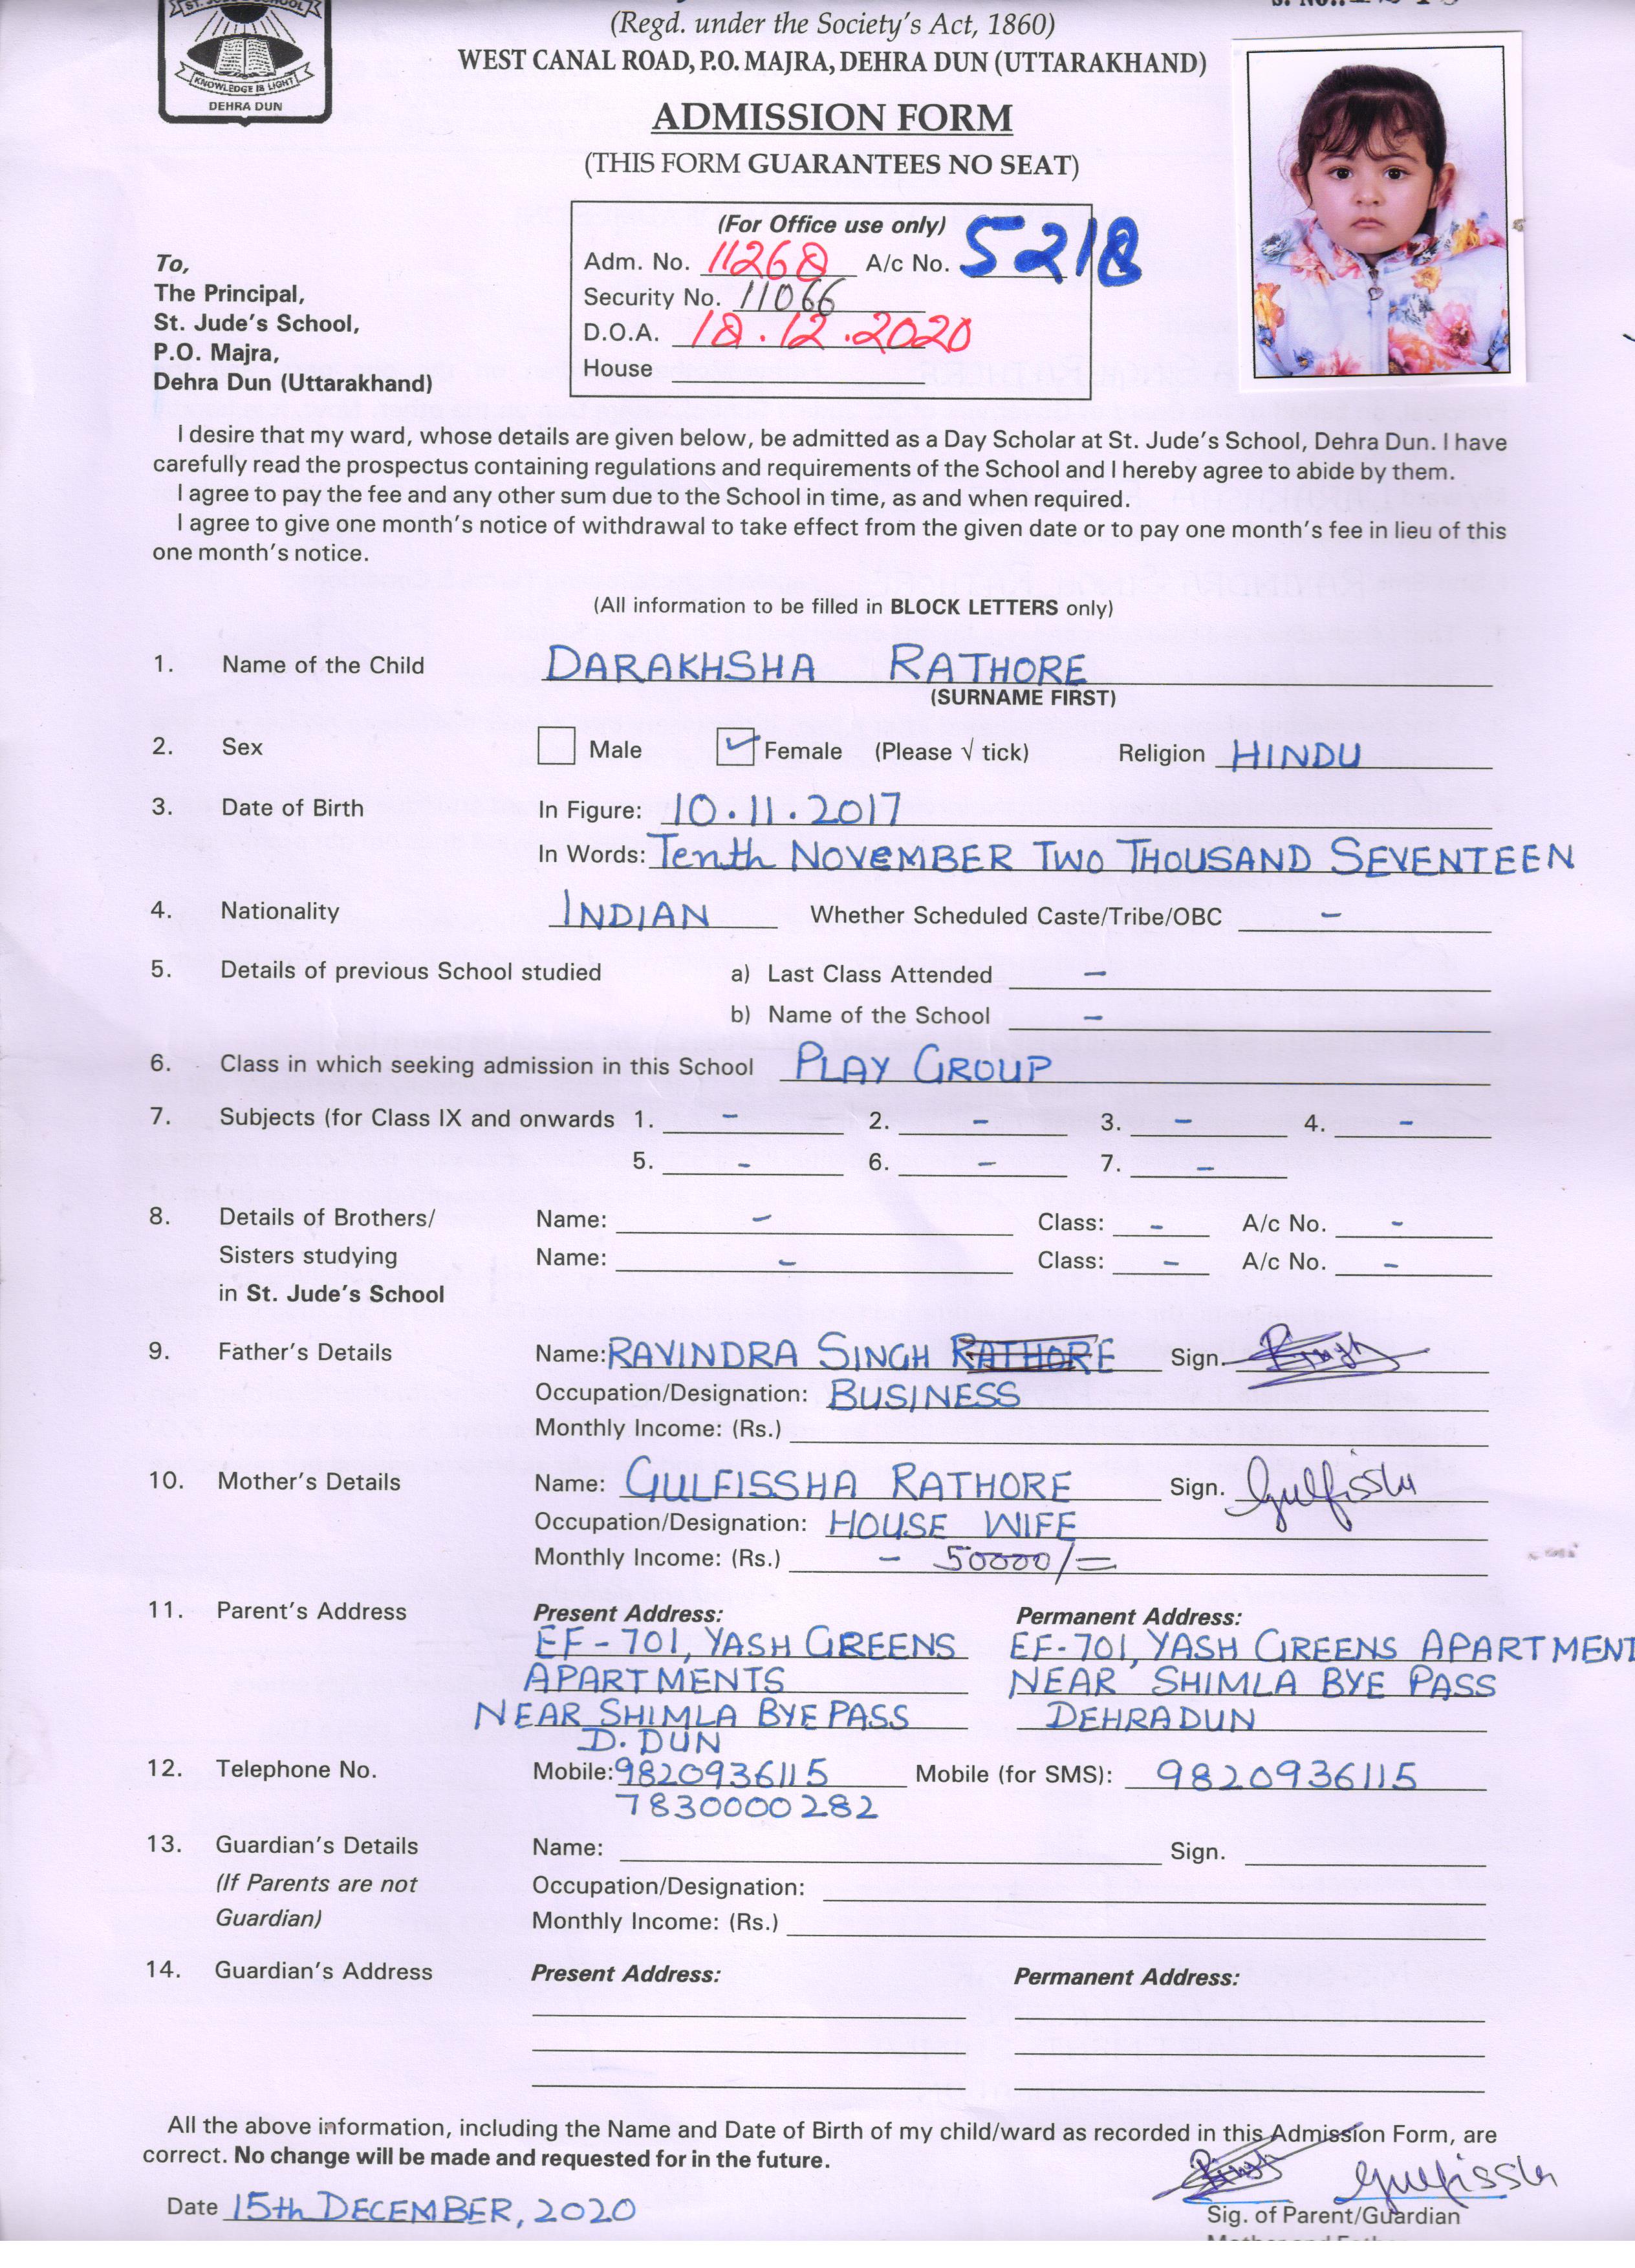 ST. JUDE'S SCHOOL
KNOWLEDGE IS LIGHT
DEHRA DUN
(Regd. under the Society's Act, 1860)
WEST CANAL ROAD, P.O. MAJRA, DEHRA DUN (UTTARAKHAND)
ADMISSION FORM
(THIS FORM GUARANTEES NO SEAT)
(For Office use only)
Adm. No. 11268 A/c No. 5218
Security No. 11066
D.O.A. 18.12.2020
House
To,
The Principal,
St. Jude's School,
P.O. Majra,
Dehra Dun (Uttarakhand)
I desire that my ward, whose details are given below, be admitted as a Day Scholar at St. Jude's School, Dehra Dun. I have
carefully read the prospectus containing regulations and requirements of the School and I hereby agree to abide by them.
I agree to pay the fee and any other sum due to the School in time, as and when required.
I agree to give one month's notice of withdrawal to take effect from the given date or to pay one month's fee in lieu of this
one month's notice.
(All information to be filled in BLOCK LETTERS only)
1. Name of the Child DARAKHSHA RATHORE
(SURNAME FIRST)
2. Sex Male Female (Please √ tick) Religion HINDU
3. Date of Birth In Figure: 10.11.2017
In Words: Tenth NOVEMBER TWO THOUSAND SEVENTEEN
4. Nationality INDIAN Whether Scheduled Caste/Tribe/OBC -
5. Details of previous School studied a) Last Class Attended -
b) Name of the School -
6. Class in which seeking admission in this School PLAY GROUP
7. Subjects (for Class IX and onwards 1. - 2. - 3. - 4. -
5. - 6. - 7. -
8. Details of Brothers/ Name: - Class: - A/c No. -
Sisters studying Name: - Class: - A/c No. -
in St. Jude's School
9. Father's Details Name: RAVINDRA SINGH RATHORE Sign. Singh
Occupation/Designation: BUSINESS
Monthly Income: (Rs.)
10. Mother's Details Name: GULFISSHA RATHORE Sign. Gulfissha
Occupation/Designation: HOUSE WIFE
Monthly Income: (Rs.) - 50000/=
11. Parent's Address Present Address: Permanent Address:
EF-701, YASH GREENS EF-701, YASH GREENS APARTMENT
APARTMENTS NEAR SHIMLA BYE PASS
NEAR SHIMLA BYE PASS DEHRADUN
D. DUN
12. Telephone No. Mobile: 9820936115 Mobile (for SMS): 9820936115
7830000282
13. Guardian's Details Name: Sign.
(If Parents are not Occupation/Designation:
Guardian) Monthly Income: (Rs.)
14. Guardian's Address Present Address: Permanent Address:
All the above information, including the Name and Date of Birth of my child/ward as recorded in this Admission Form, are
correct. No change will be made and requested for in the future.
Singh Gulfissha
Date 15th DECEMBER, 2020
Sig. of Parent/Guardian